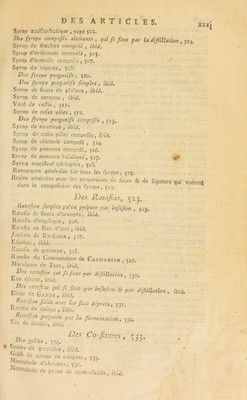 DES ARTICLES. xxxj
Syrop antiscorbutique, page 502.
Des syrops composés altérants, qui se font par la distillation, 504.
Syrop de Stœchas composé, ibid.
Syrop d'érésimum composé, 505.
Syrop d'armoise composé, 507.
Syrop de vipères, 508.
Des syrops purgatifs, 510.
Des syrops purgatifs simples, ibid.
Syrop de fleurs de pêchers, ibid.
Syrop de nerprun, ibid.
Syrop de roses pâles,
Des syrops purgatifs composés, 513.
Syrop de roses pâles composé, ibid.
Syrop de chicorée composé,
Syrop de pommes composé, 516.
Syrop de pommes helléboré, 517.
Syrop magistral astringent, 518.
Remarques générales sur tous les syrops, 519.
Regles générales pour les proportions de sucre & de liqueurs qui entrent
dans la composition des syrops,
Des Ratafias, 523.
Ratafias simples qu'on prépare par infusion, 525.
Ratafia de fleurs d'oranges, ibid.
Ratafia d'angélique, 526.
Ratafia ou Eau d'anis, ibid.
Anisette de Bordeaux, 527.
Ratafia de genievre, 528.
Ratafia du Commandeur de CAUMARTIN,
Marasquin de Zara, ibid.
Des ratafias qui se font par distillation, 530.
Eau divine, ibid.
Des ratafias qui se font par infusion & par distillation, ibid.
Elixir de GARUS, ibid.
Ratafias faits avec les sucs dépurés, 531.
Ratafia de coings, ibid.
Ratafias préparés par la fermentation, 532.
Vin de cerises, ibid.
Des Confitures, 533.
Des gelées, 534.
Gelée de groseilles, ibid.
Gelée de coings, 535.
Marmelade d'abricots,
Marmelade de prune de reine-claude, ibid.